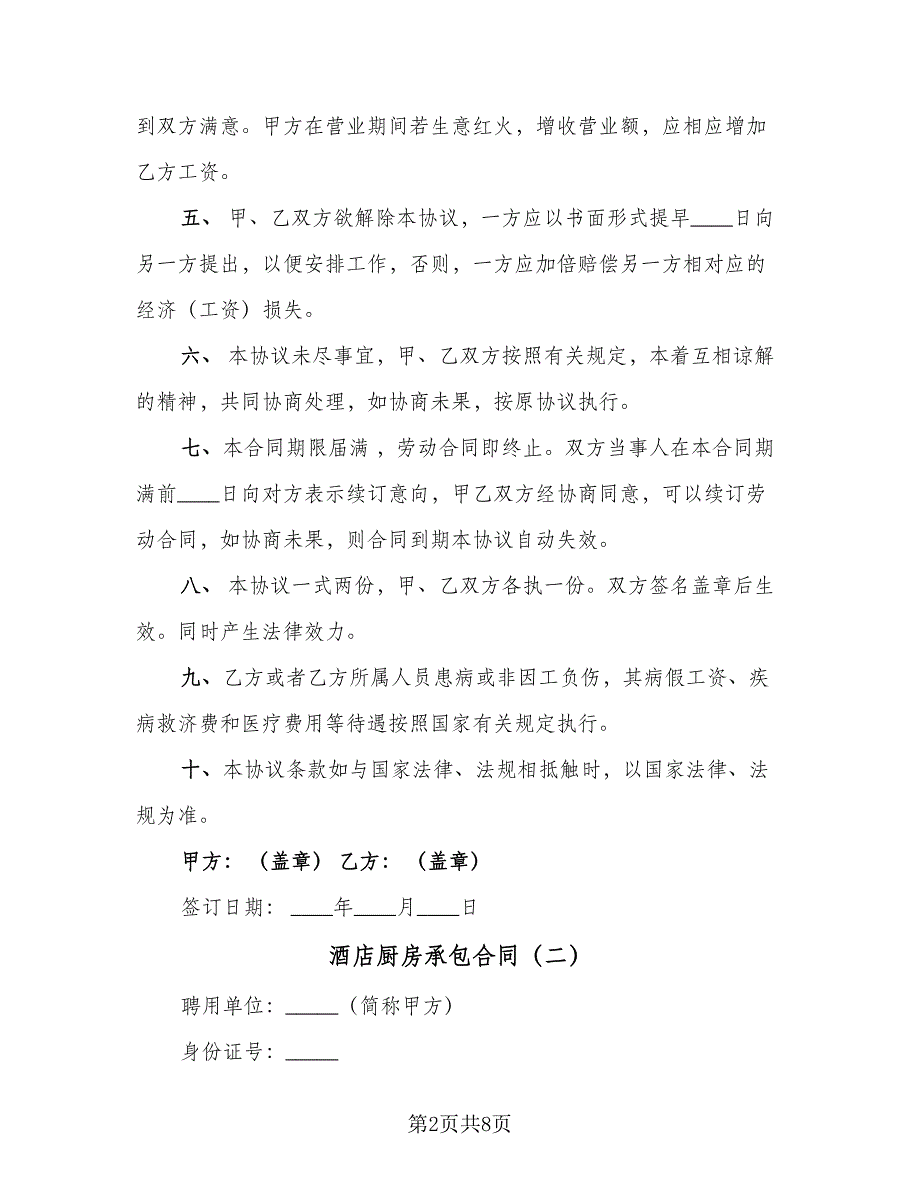 到双方满意。甲方在营业期间若生意红火，增收营业额，应相应增加
乙方工资。
五、 甲、乙双方欲解除本协议，一方应以书面形式提早____日向
另一方提出，以便安排工作，否则，一方应加倍赔偿另一方相对应的
经济（工资）损失。
六、 本协议未尽事宜，甲、乙双方按照有关规定，本着互相谅解
的精神，共同协商处理，如协商未果，按原协议执行。
七、本合同期限届满 ，劳动合同即终止。双方当事人在本合同期
满前____日向对方表示续订意向，甲乙双方经协商同意，可以续订劳
动合同，如协商未果，则合同到期本协议自动失效。
八、 本协议一式两份，甲、乙双方各执一份。双方签名盖章后生
效。同时产生法律效力。
九、乙方或者乙方所属人员患病或非因工负伤，其病假工资、疾
病救济费和医疗费用等待遇按照国家有关规定执行。
十、本协议条款如与国家法律、法规相抵触时，以国家法律、法
规为准。
甲方： （盖章） 乙方： （盖章）
签订日期： ____年____月____日
酒店厨房承包合同（二）
聘用单位：_____（简称甲方）
身份证号：_____
第2页共8页